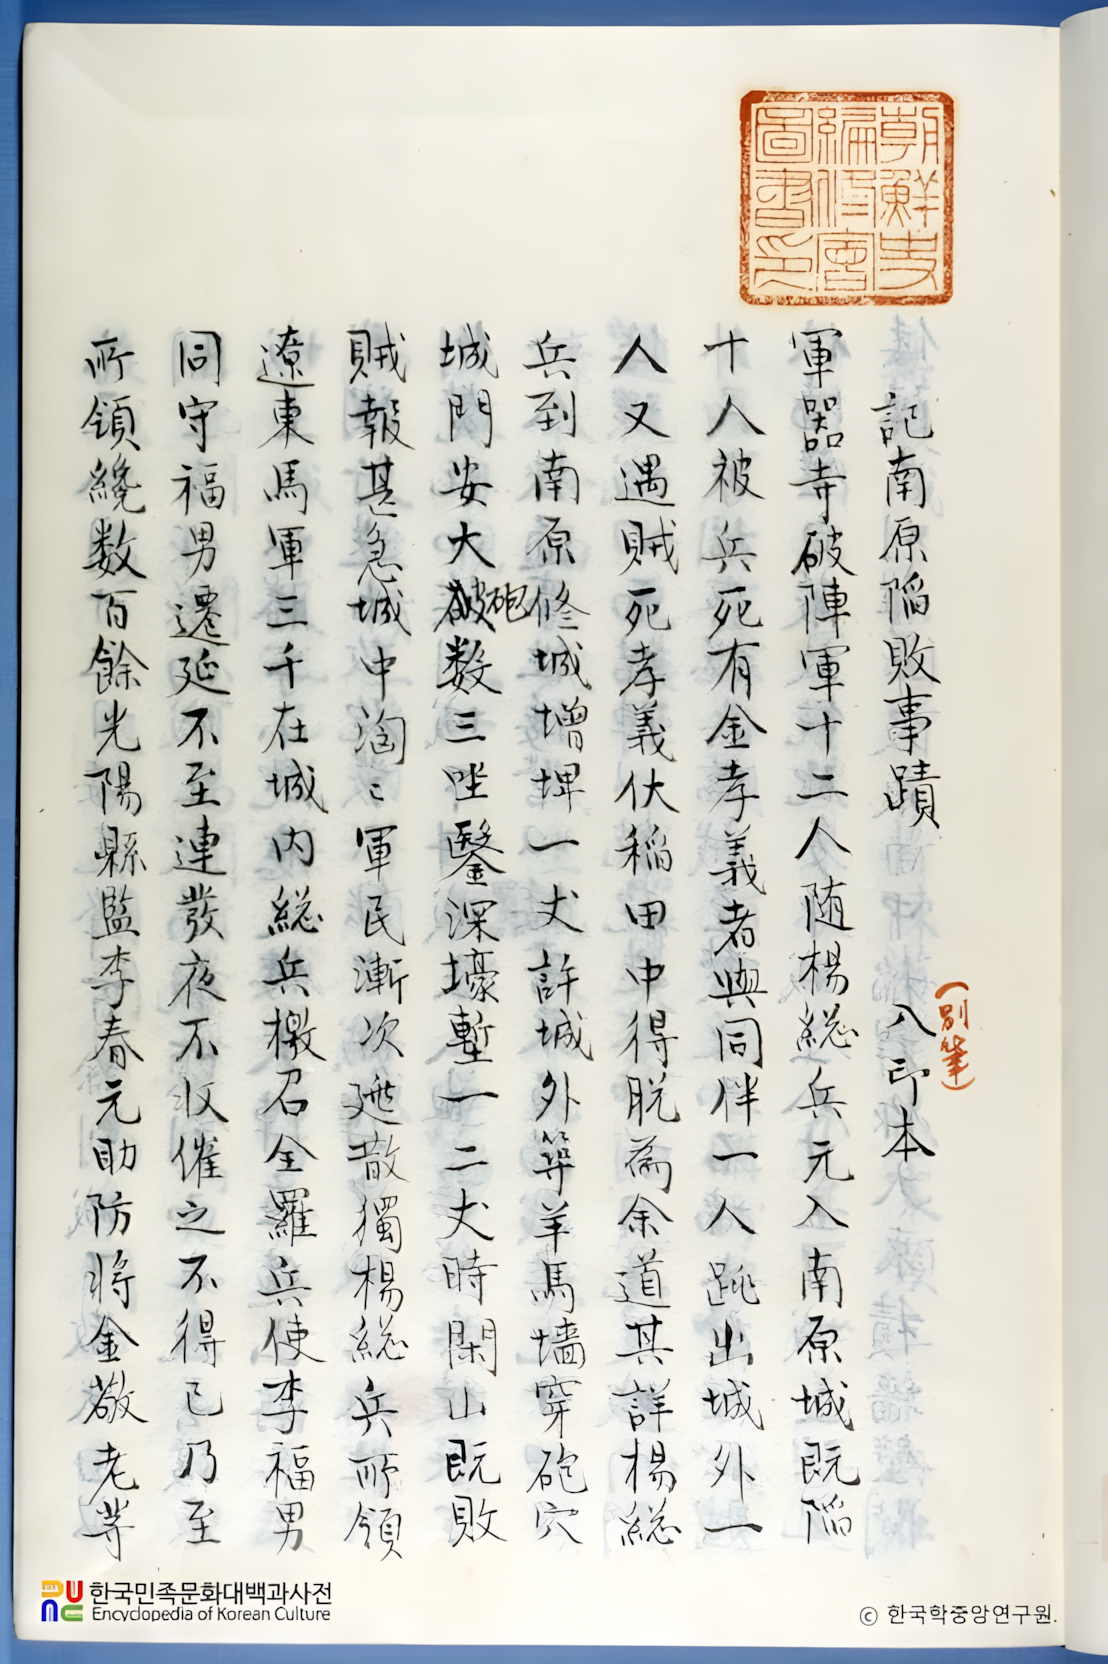 朝鮮史
編修會
圖書印
記南原陷敗事蹟 入印本
(別筆)
軍器寺破陣軍十二人随楊緫兵元入南原城既陷
十人被兵死有金孝義者與同伴一人跳出城外一
人又遇賊死孝義伏稲田中得脱為余道其詳楊緫
兵到南原修城增埤一丈許城外筭羊馬墻穿砲穴
城門安大破数三坐鑿深壕塹一二丈時閑山既敗
砲
賊報甚急城中洶〻軍民漸次逃散獨楊緫兵所領
遼東馬軍三千在城内緫兵檄召全羅兵使李福男
同守福男遷延不至連發夜不收催之不得已乃至
所領纔数百餘光陽縣監李春元助防将金敬老等
한국민족문화대백과사전
Encyclopedia of Korean Culture
ⓒ 한국학중앙연구원.